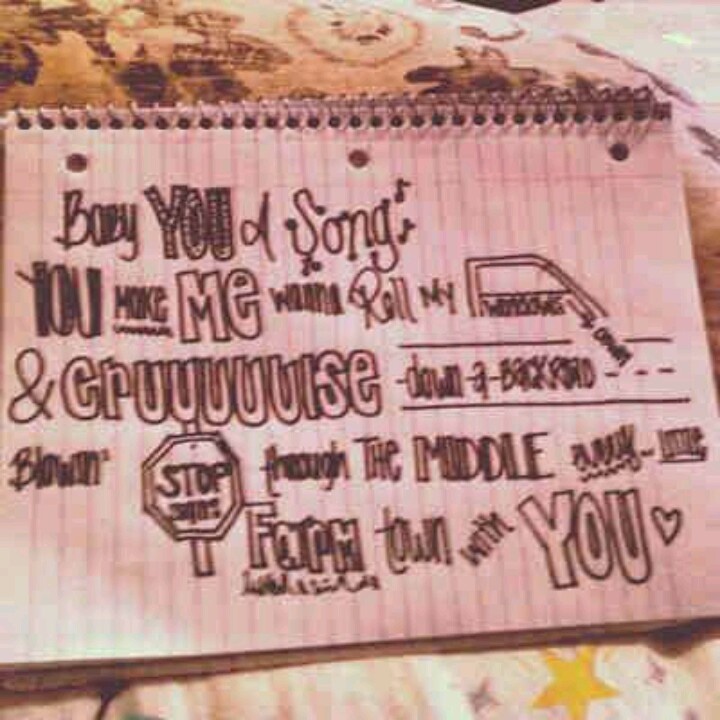 Baby YOU a Song
YOU MAKE Me wanna Roll MY WINDOWS DOWN
& cruuuuuuise down a BACKROAD
Blowin' STOP signs through THE MIDDLE every little
Farm town with YOU